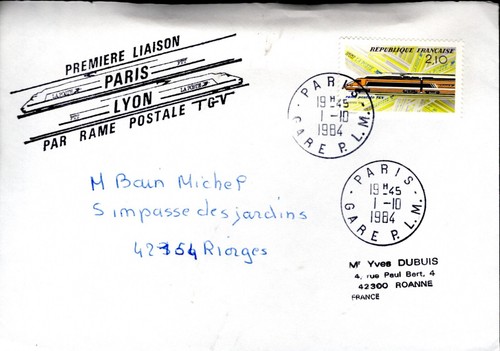 PREMIERE LIAISON
PARIS
LYON
PAR RAME POSTALE TGV
REPUBLIQUE FRANÇAISE
2,10
PARIS
19H45
1-10
1984
GARE P.L.M.
PARIS
19H45
1-10
1984
GARE P.L.M.
M Bain Michel
5 impasse des jardins
42 Riorges
Mr Yves DUBUIS
4, rue Paul Bert, 4
42300 ROANNE
FRANCE